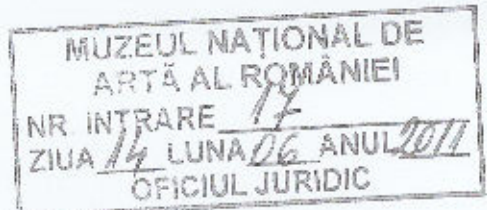 MUZEUL NAȚIONAL DE
ARTĂ AL ROMÂNIEI
NR. INTRARE 17
ZIUA 14 LUNA 06 ANUL 2011
OFICIUL JURIDIC